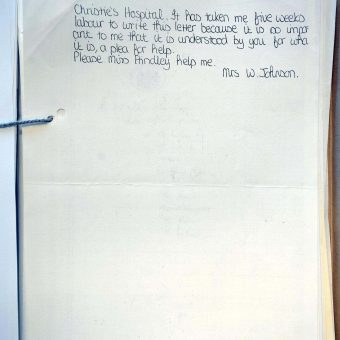 Christie's Hospital. It has taken me five weeks
labour to write this letter because it is so impor
ant to me that it is understood by you for wha
it is, a plea for help.
Please Miss Hindley help me.
Mrs W. Johnson.